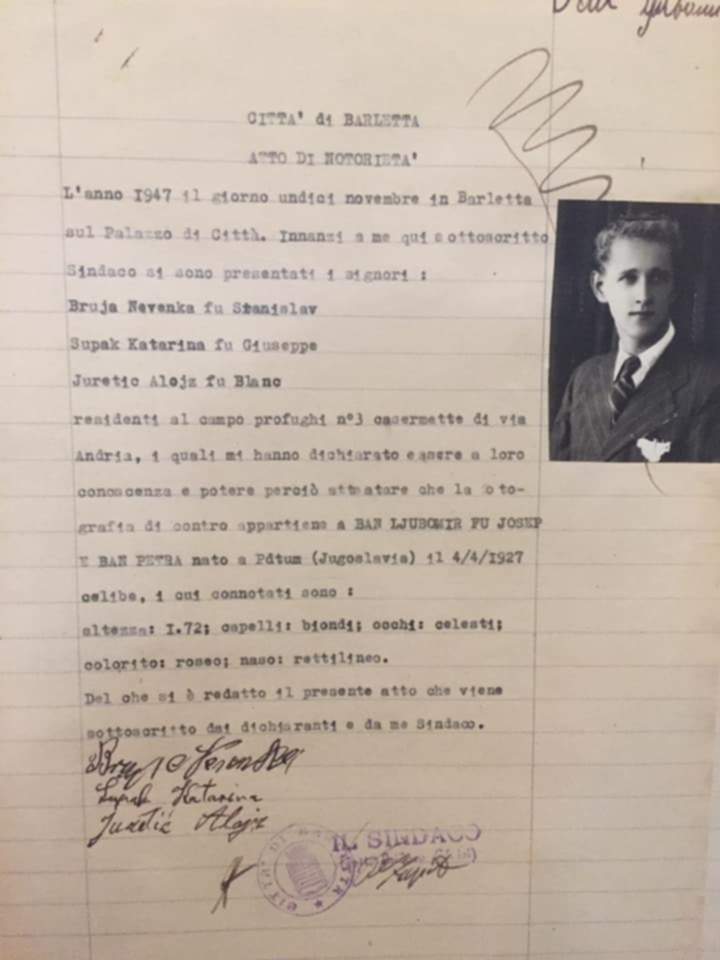 CITTA' di BARLETTA
ATTO DI NOTORIETA'
L'anno 1947 il giorno undici novembre in Barletta
sul Palazzo di Città. Innanzi a me qui sottoscritto
Sindaco si sono presentati i signori :
Bruja Nevenka fu Stanislav
Supak Katarina fu Giuseppe
Juretic Alojz fu Blanc
residenti al campo profughi n°3 casermette di via
Andria, i quali mi hanno dichiarato essere a loro
conoscenza e potere perciò attestare che la oto-
grafia di contro appartiene a BAN LJUBOMIR FU JOSEP
E BAN PETRA nato a Pdtum (Jugoslavia) il 4/4/1927
celibe, i cui connotati sono :
altezza: I.72; capelli: biondi; occhi: celesti;
colorito: roseo; naso: rettilineo.
Del che si è redatto il presente atto che viene
sottoscritto dai dichiaranti e da me Sindaco.
Supak Katarina
Juretić Alojz
IL SINDACO